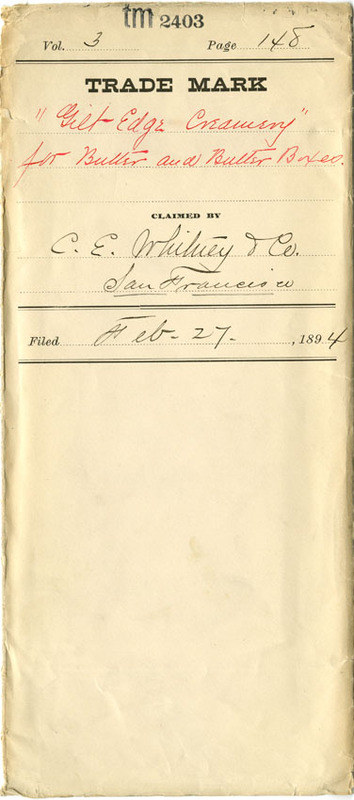 tm 2403
Vol. 3 Page 148
TRADE MARK
"Gilt Edge Creamery"
for Butter and Butter Boxes.
CLAIMED BY
C. E. Whitney & Co.
San Francisco
Filed Feb- 27- , 1894